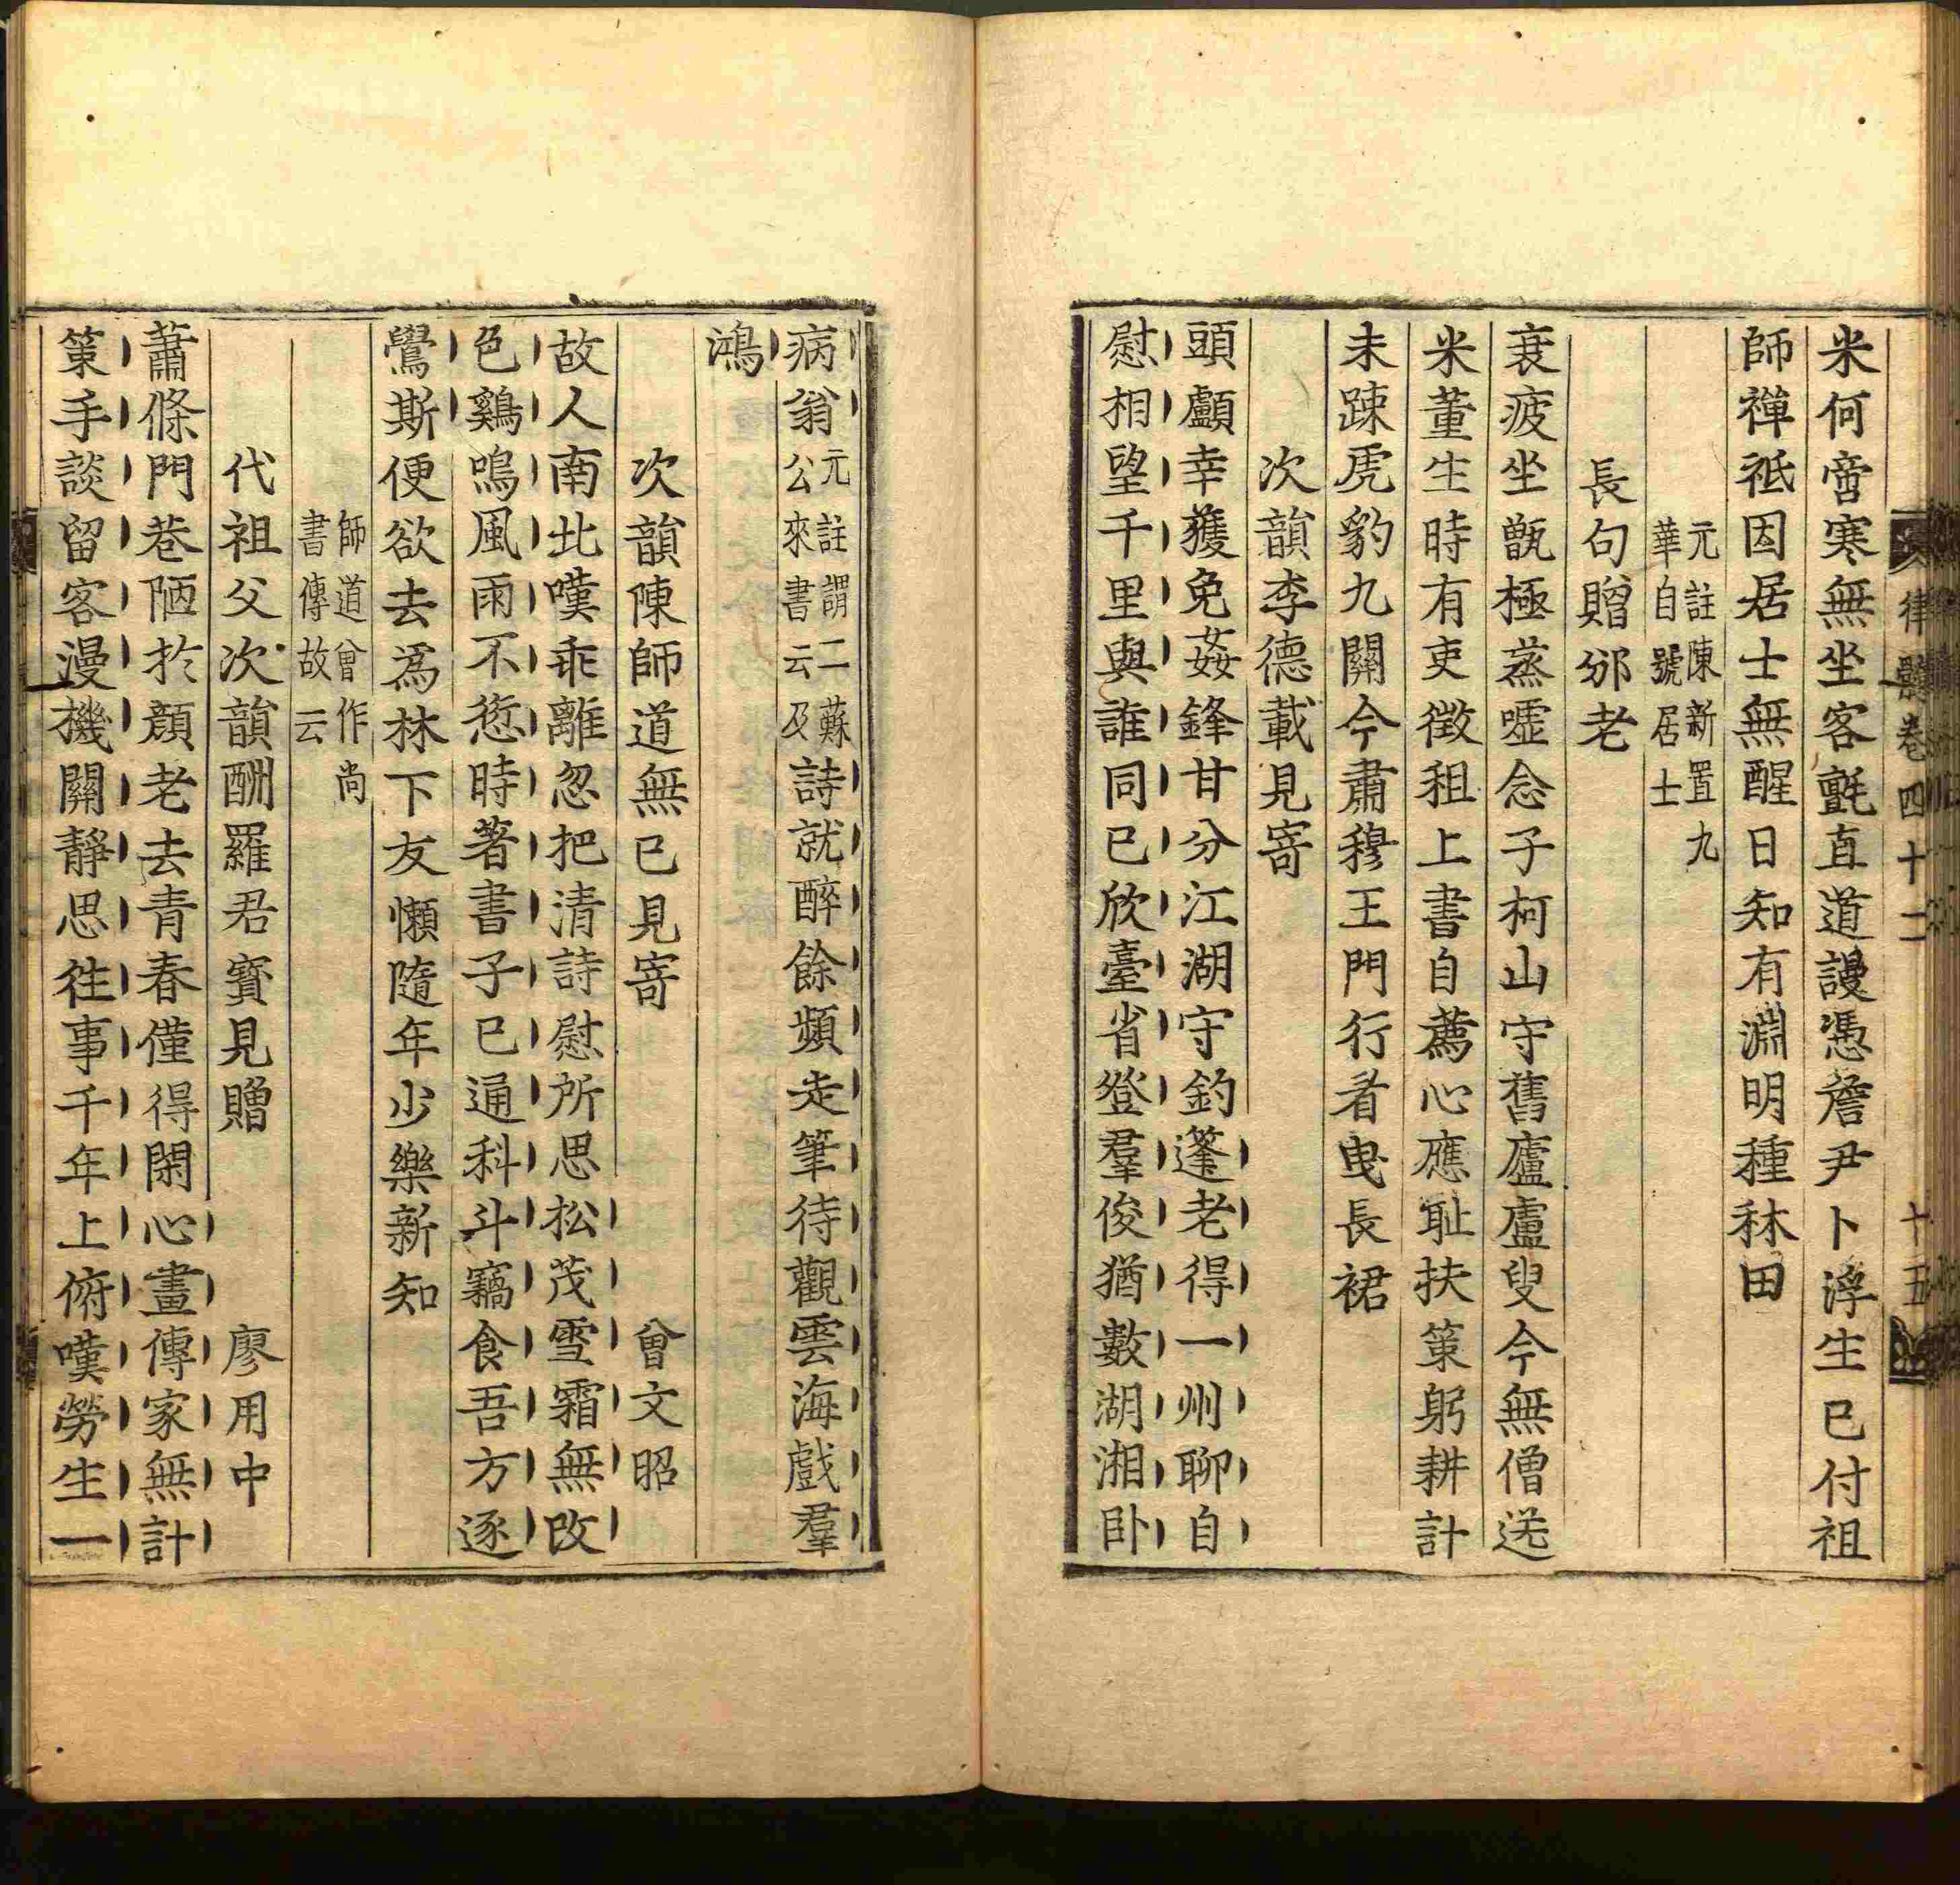 米何啻寒無坐客氈直道謾憑詹尹卜浮生已付祖
師禪祗因居士無醒日知有淵明種秫田
元註陳新置九
華自號居士
長句贈邠老
衰疲坐甑極蒸噓念子柯山守舊廬盧叟今無僧送
米董生時有吏徵租上書自薦心應耻扶策躬耕計
未踈虎豹九關今肅穆王門行看曳長裾
次韻李德載見寄
頭顱幸獲免姦鋒甘分江湖守釣蓬老得一州聊自
慰相望千里與誰同已欣臺省登羣俊猶數湖湘卧
病翁元註謂二蘇
公來書云及詩就醉餘頻走筆待觀雲海戲羣
鴻
次韻陳師道無已見寄 曾文昭
故人南北嘆乖離忽把清詩慰所思松茂雪霜無改
色鷄鳴風雨不愆時著書子已通科斗竊食吾方逐
鸒斯便欲去爲林下友懶隨年少樂新知
師道曾作尚
書傳故云
代祖父次韻酬羅君寶見贈 廖用中
蕭條門巷陋扵顔老去青春僅得閑心畫傳家無計
策手談留客漫機關靜思徃事千年上俯嘆勞生一
律髓卷四十二 十五